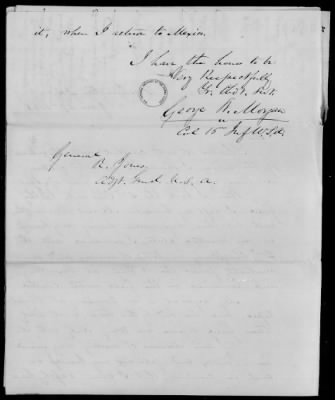 it, when I return to Mexico.
I have the honor to be
Very Respectfully
Yr. Obdt. Svt.
George W. Morgan
Col 15th Inf U.S.A.
General
R. Jones
Adjt. Genl U.S.A.